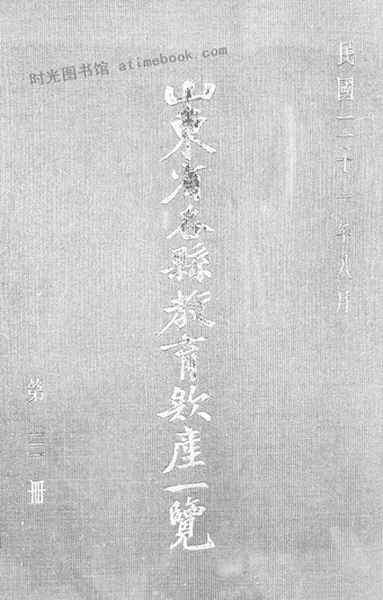 时光图书馆 atimebook.com
民國二十一年八月
山東省各縣教育欵產一覽
第三冊